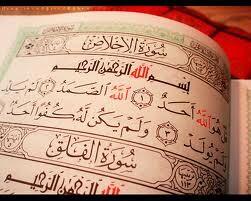 سُورَةُ الْإِخْلَاصِ
بِسْمِ اللَّهِ الرَّحْمَٰنِ الرَّحِيمِ
قُلْ هُوَ اللَّهُ أَحَدٌ ۝١ اللَّهُ الصَّمَدُ ۝٢ لَمْ
يَلِدْ وَلَمْ يُولَدْ ۝٣ وَلَمْ يَكُن لَّهُ كُفُوًا أَحَدٌ
سُورَةُ الْفَلَقِ
اللَّهِ الرَّحْمَٰنِ الرَّحِيمِ